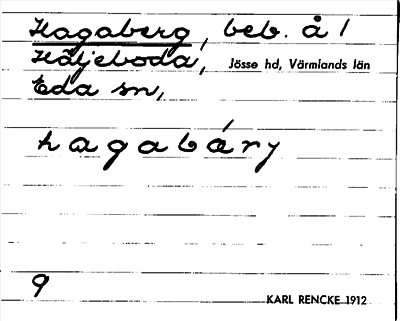 Hagaberg, beb. å /
Häljeboda, Jösse hd, Värmlands län
Eda sn,
hagabáry
9
KARL RENCKE 1912